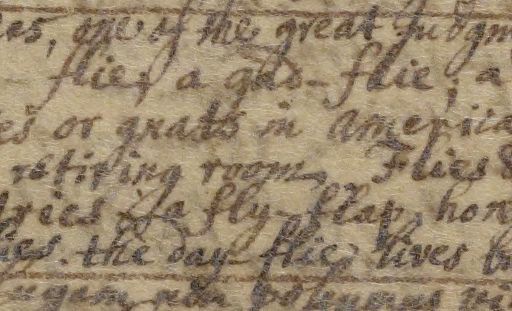 es, one of the great Judgm
flie, a gad-flie, a
es or gnats in America
retiring room, Flies &
tries a fly-flap, hon
lies. the day flie lives b